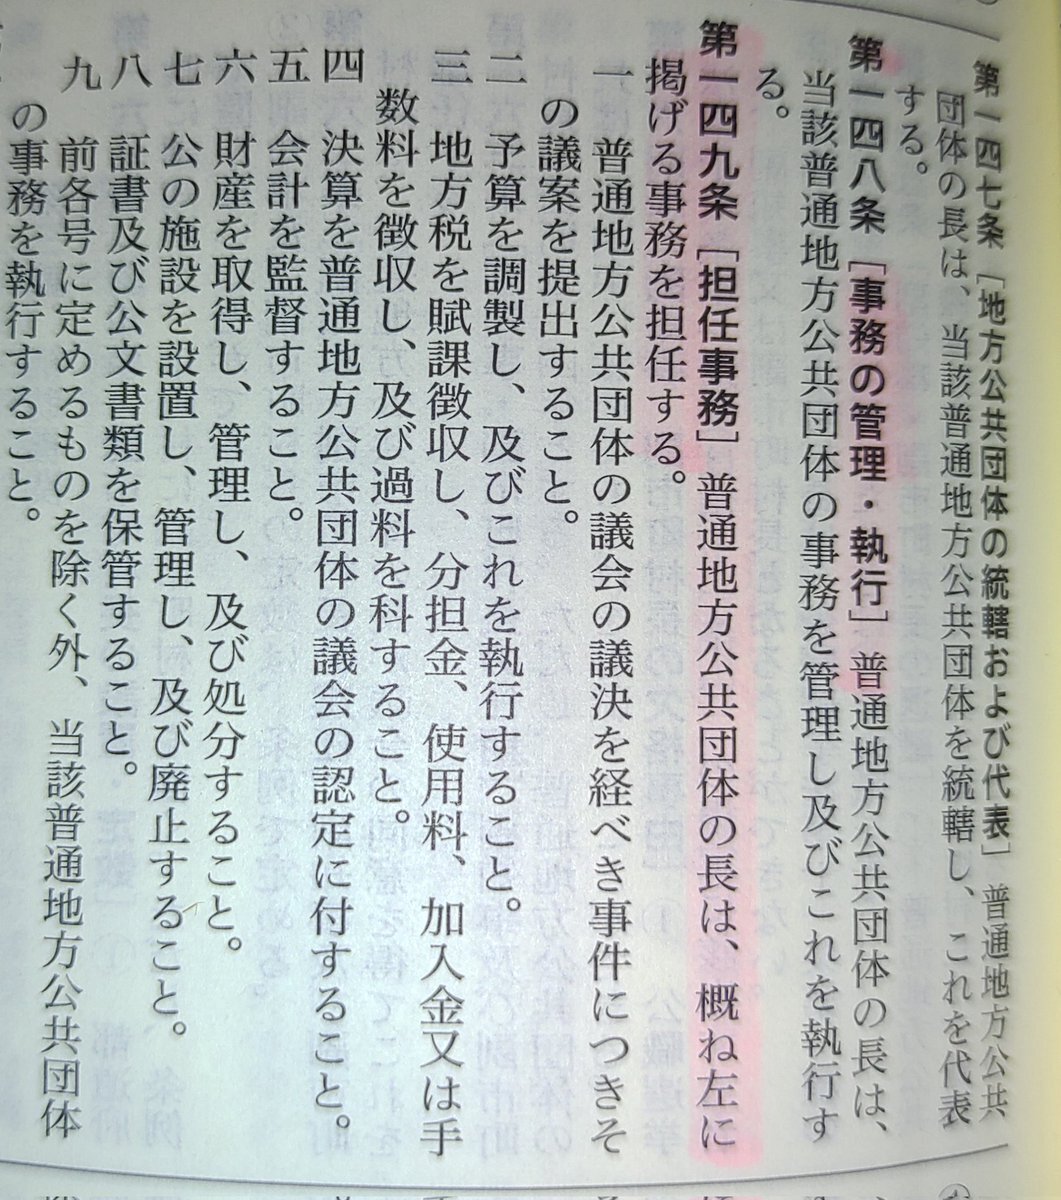 第一四七条［地方公共団体の統轄および代表］　普通地方公共
団体の長は、当該普通地方公共団体を統轄し、これを代表
する。
第一四八条［事務の管理・執行］　普通地方公共団体の長は、
当該普通地方公共団体の事務を管理し及びこれを執行す
る。
第一四九条［担任事務］　普通地方公共団体の長は、概ね左に
掲げる事務を担任する。
一　普通地方公共団体の議会の議決を経べき事件につきそ
の議案を提出すること。
二　予算を調製し、及びこれを執行すること。
三　地方税を賦課徴収し、分担金、使用料、加入金又は手
数料を徴収し、及び過料を科すること。
四　決算を普通地方公共団体の議会の認定に付すること。
五　会計を監督すること。
六　財産を取得し、管理し、及び処分すること。
七　公の施設を設置し、管理し、及び廃止すること。
八　証書及び公文書類を保管すること。
九　前各号に定めるものを除く外、当該普通地方公共団体
の事務を執行すること。